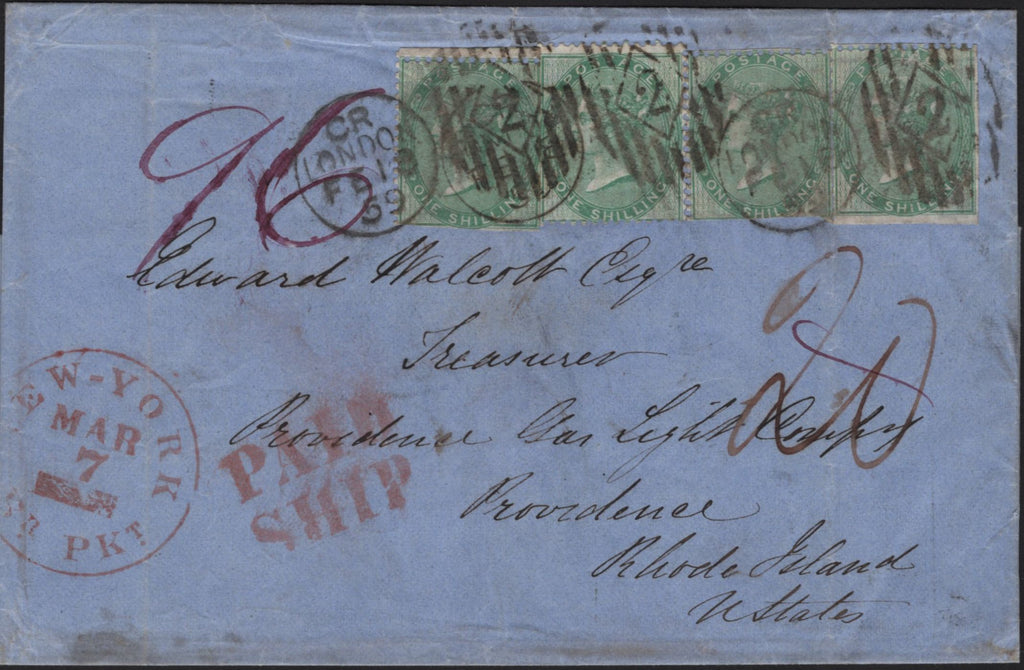 96
CR
LONDON
FE 1
59
POSTAGE
ONE SHILLING
POSTAGE
ONE SHILLING
POSTAGE
ONE SHILLING
POSTAGE
ONE SHILLING
Edward Walcott Esqre
Treasurer
Providence Gas Light Compy
Providence
Rhode Island
U States
NEW-YORK
MAR
7
BR PKT
PAID
SHIP